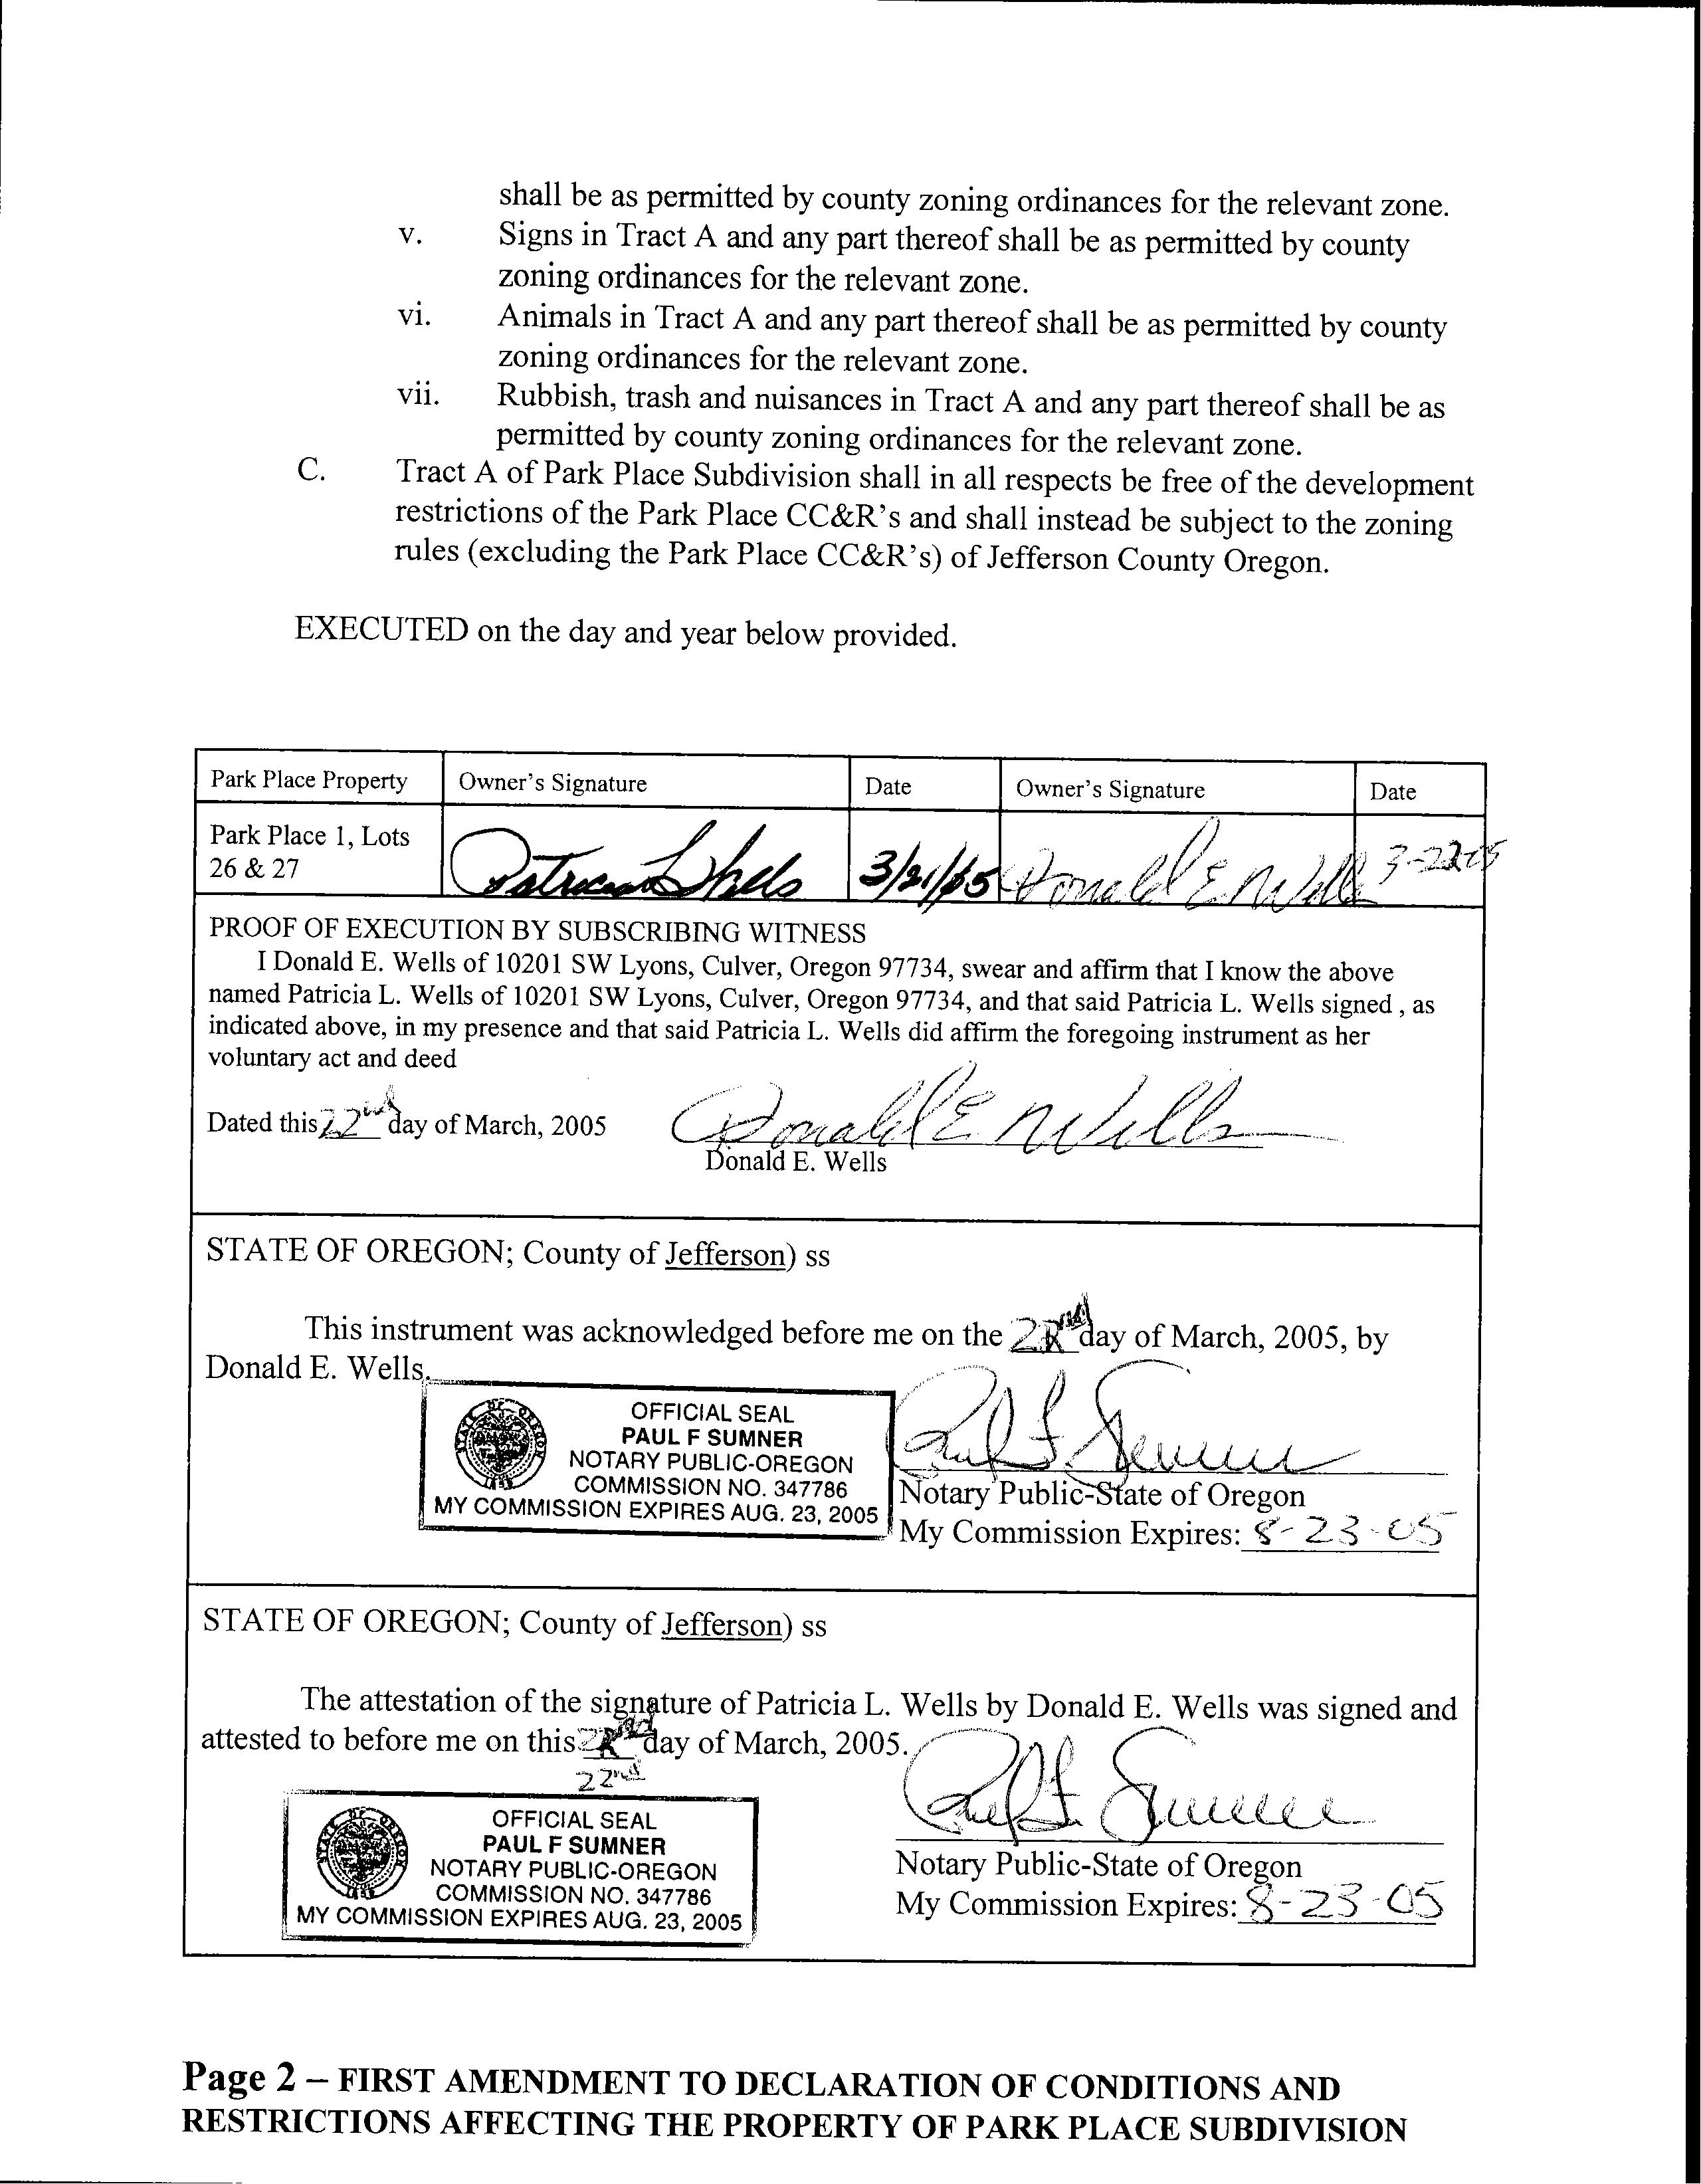 shall be as permitted by county zoning ordinances for the relevant zone.
v. Signs in Tract A and any part thereof shall be as permitted by county
zoning ordinances for the relevant zone.
vi. Animals in Tract A and any part thereof shall be as permitted by county
zoning ordinances for the relevant zone.
vii. Rubbish, trash and nuisances in Tract A and any part thereof shall be as
permitted by county zoning ordinances for the relevant zone.
C. Tract A of Park Place Subdivision shall in all respects be free of the development
restrictions of the Park Place CC&R's and shall instead be subject to the zoning
rules (excluding the Park Place CC&R's) of Jefferson County Oregon.
EXECUTED on the day and year below provided.
Park Place Property Owner's Signature Date Owner's Signature Date
Park Place 1, Lots
26 & 27 Patricia L Wells 3/21/05 Donald E. Wells 3-22-05
PROOF OF EXECUTION BY SUBSCRIBING WITNESS
I Donald E. Wells of 10201 SW Lyons, Culver, Oregon 97734, swear and affirm that I know the above
named Patricia L. Wells of 10201 SW Lyons, Culver, Oregon 97734, and that said Patricia L. Wells signed , as
indicated above, in my presence and that said Patricia L. Wells did affirm the foregoing instrument as her
voluntary act and deed
Dated this 22nd day of March, 2005 Donald E Wells
Donald E. Wells
STATE OF OREGON; County of Jefferson) ss
This instrument was acknowledged before me on the 22nd day of March, 2005, by
Donald E. Wells.
STATE OF OREGON
1859
OFFICIAL SEAL
PAUL F SUMNER
NOTARY PUBLIC-OREGON
COMMISSION NO. 347786
MY COMMISSION EXPIRES AUG. 23, 2005
Paul F. Sumner
Notary Public-State of Oregon
My Commission Expires: 8-23-05
STATE OF OREGON; County of Jefferson) ss
The attestation of the signature of Patricia L. Wells by Donald E. Wells was signed and
attested to before me on this 22nd day of March, 2005.
22nd
STATE OF OREGON
1859
OFFICIAL SEAL
PAUL F SUMNER
NOTARY PUBLIC-OREGON
COMMISSION NO. 347786
MY COMMISSION EXPIRES AUG. 23, 2005
Paul F. Sumner
Notary Public-State of Oregon
My Commission Expires: 8-23-05
Page 2 – FIRST AMENDMENT TO DECLARATION OF CONDITIONS AND
RESTRICTIONS AFFECTING THE PROPERTY OF PARK PLACE SUBDIVISION